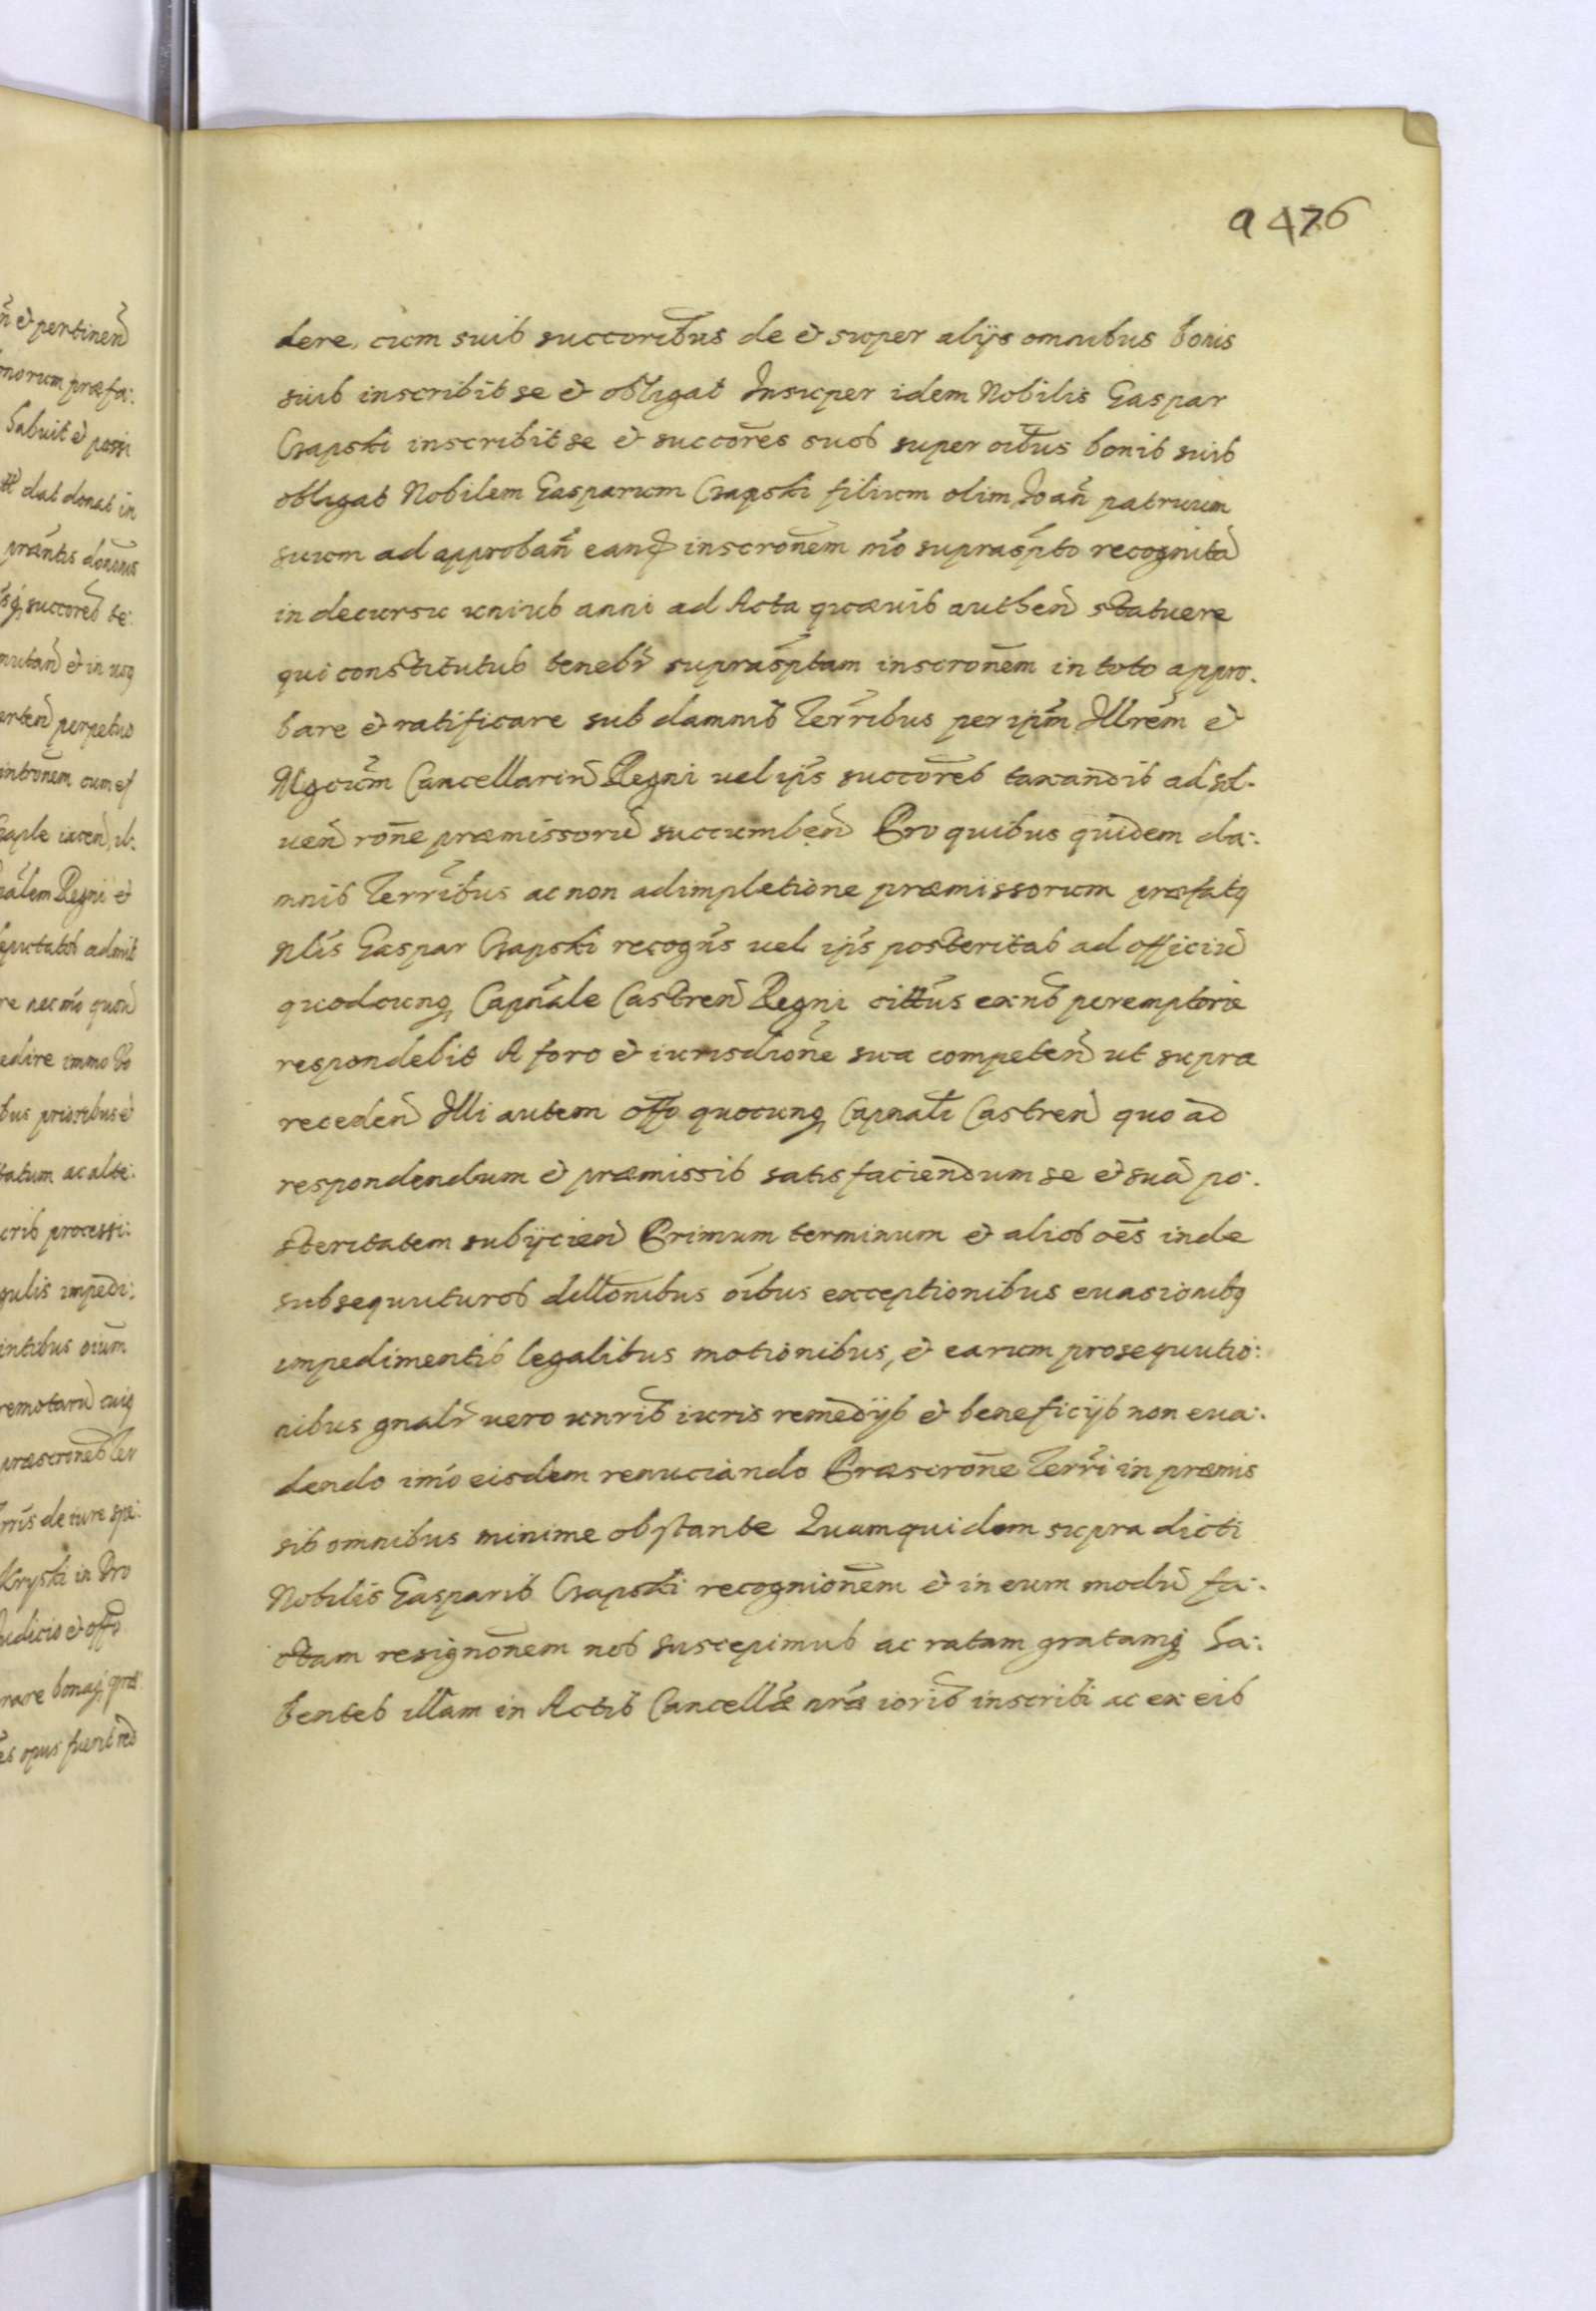 a 476
dere, cum suis succoribus de et super alijs omnibus bonis
suis inscribit se et obligat Insuper idem Nobilis Gaspar
Czapski inscribit se et succores suos super oibus bonis suis
obligat Nobilem Gasparum Czapski filium olim Joan patruum
suum ad approban eand inscronem mo suprascpto recognita
in decursu unius anni ad Acta quævis authen statuere
qui constitutus tenebr suprascptam inscronem in toto appro.
bare et ratificare sub damnis Terribus per ipm Illrem et
Mgcum Cancellariu Regni vel ips succores taxandis ad sol.
ven rone præmissoru succumben Pro quibus quidem da:
mnis Terribus ac non adimpletione præmissorum præfatq
Nlis Gaspar Czapski recogns vel ips posteritas ad officiu
quodcunq Capnale Castren Regni cittus ex nc peremptorie
respondebit A foro et iurisdione sua competen ut supra
receden Illi autem offo quocunq Capnali Castren quo ad
respondendum et præmissis satisfaciendum se et sua po:
steritatem subijcien Primum terminum et alios oes inde
subsequuturos dillonibus oibus exceptionibus evasionibq
impedimentis legalibus motionibus, et earum prosequutio:
nibus gnalr vero unris iuris remedijs et beneficijs non eva:
dendo imo eisdem renuciando Præscrone Terri in præmis
sis omnibus minime obstante Quam quidem supra dicti
Nobilis Gasparis Czapski recognionem et in eum modu fa:
ctam resignonem nos suscepimus ac ratam gratamq ha:
bentes illam in Actis Cancellæ nræ ioris inscribi ac ex eis
n et pertinen
norum præfa:
habuit et possi
dat donat in
præntis
succores te:
mutan et in usq
perpetuo
intronem cum ef
iacen
Regni et
admit
edire immo
bus prioribus et
tatum ac alte:
cris processi:
gulis impedi:
oium
remotaru cuiq
præscrones Ter
de iure spe:
Kryski in
udicio et offo
opus fuerit